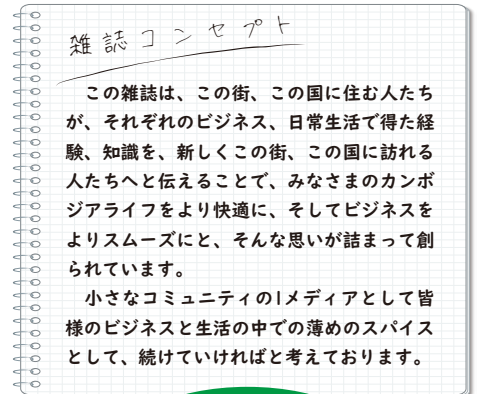 雑誌コンセプト
　この雑誌は、この街、この国に住む人たち
が、それぞれのビジネス、日常生活で得た経
験、知識を、新しくこの街、この国に訪れる
人たちへと伝えることで、みなさまのカンボ
ジアライフをより快適に、そしてビジネスを
よりスムーズにと、そんな思いが詰まって創
られています。
　小さなコミュニティの1メディアとして皆
様のビジネスと生活の中での薄めのスパイス
として、続けていければと考えております。